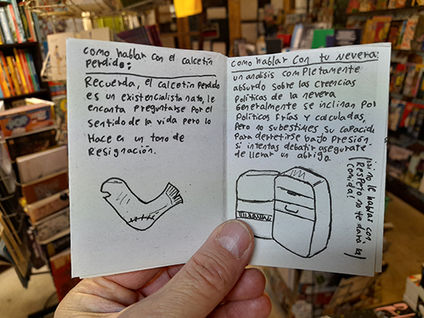 como hablar con el calcetin
perdido:
Recuerda, el calcetin perdido
es un existencialista nato, le
encanta preguntarse por el
sentido de la vida pero lo
Hace en un tono de
Resignación.
como hablar con tu nevera:
un analisis completamente
absurdo sobre las creencias
Politicas de la nevera
Generalmente se inclinan por
Politicas frias y calculadas,
Pero no subestimes su capacidad
Para derretirse bajo Presión
si intentas debatir asegurate
de llevar un abrigo.
si no le hablas con
Respeto no te dara la
comida!